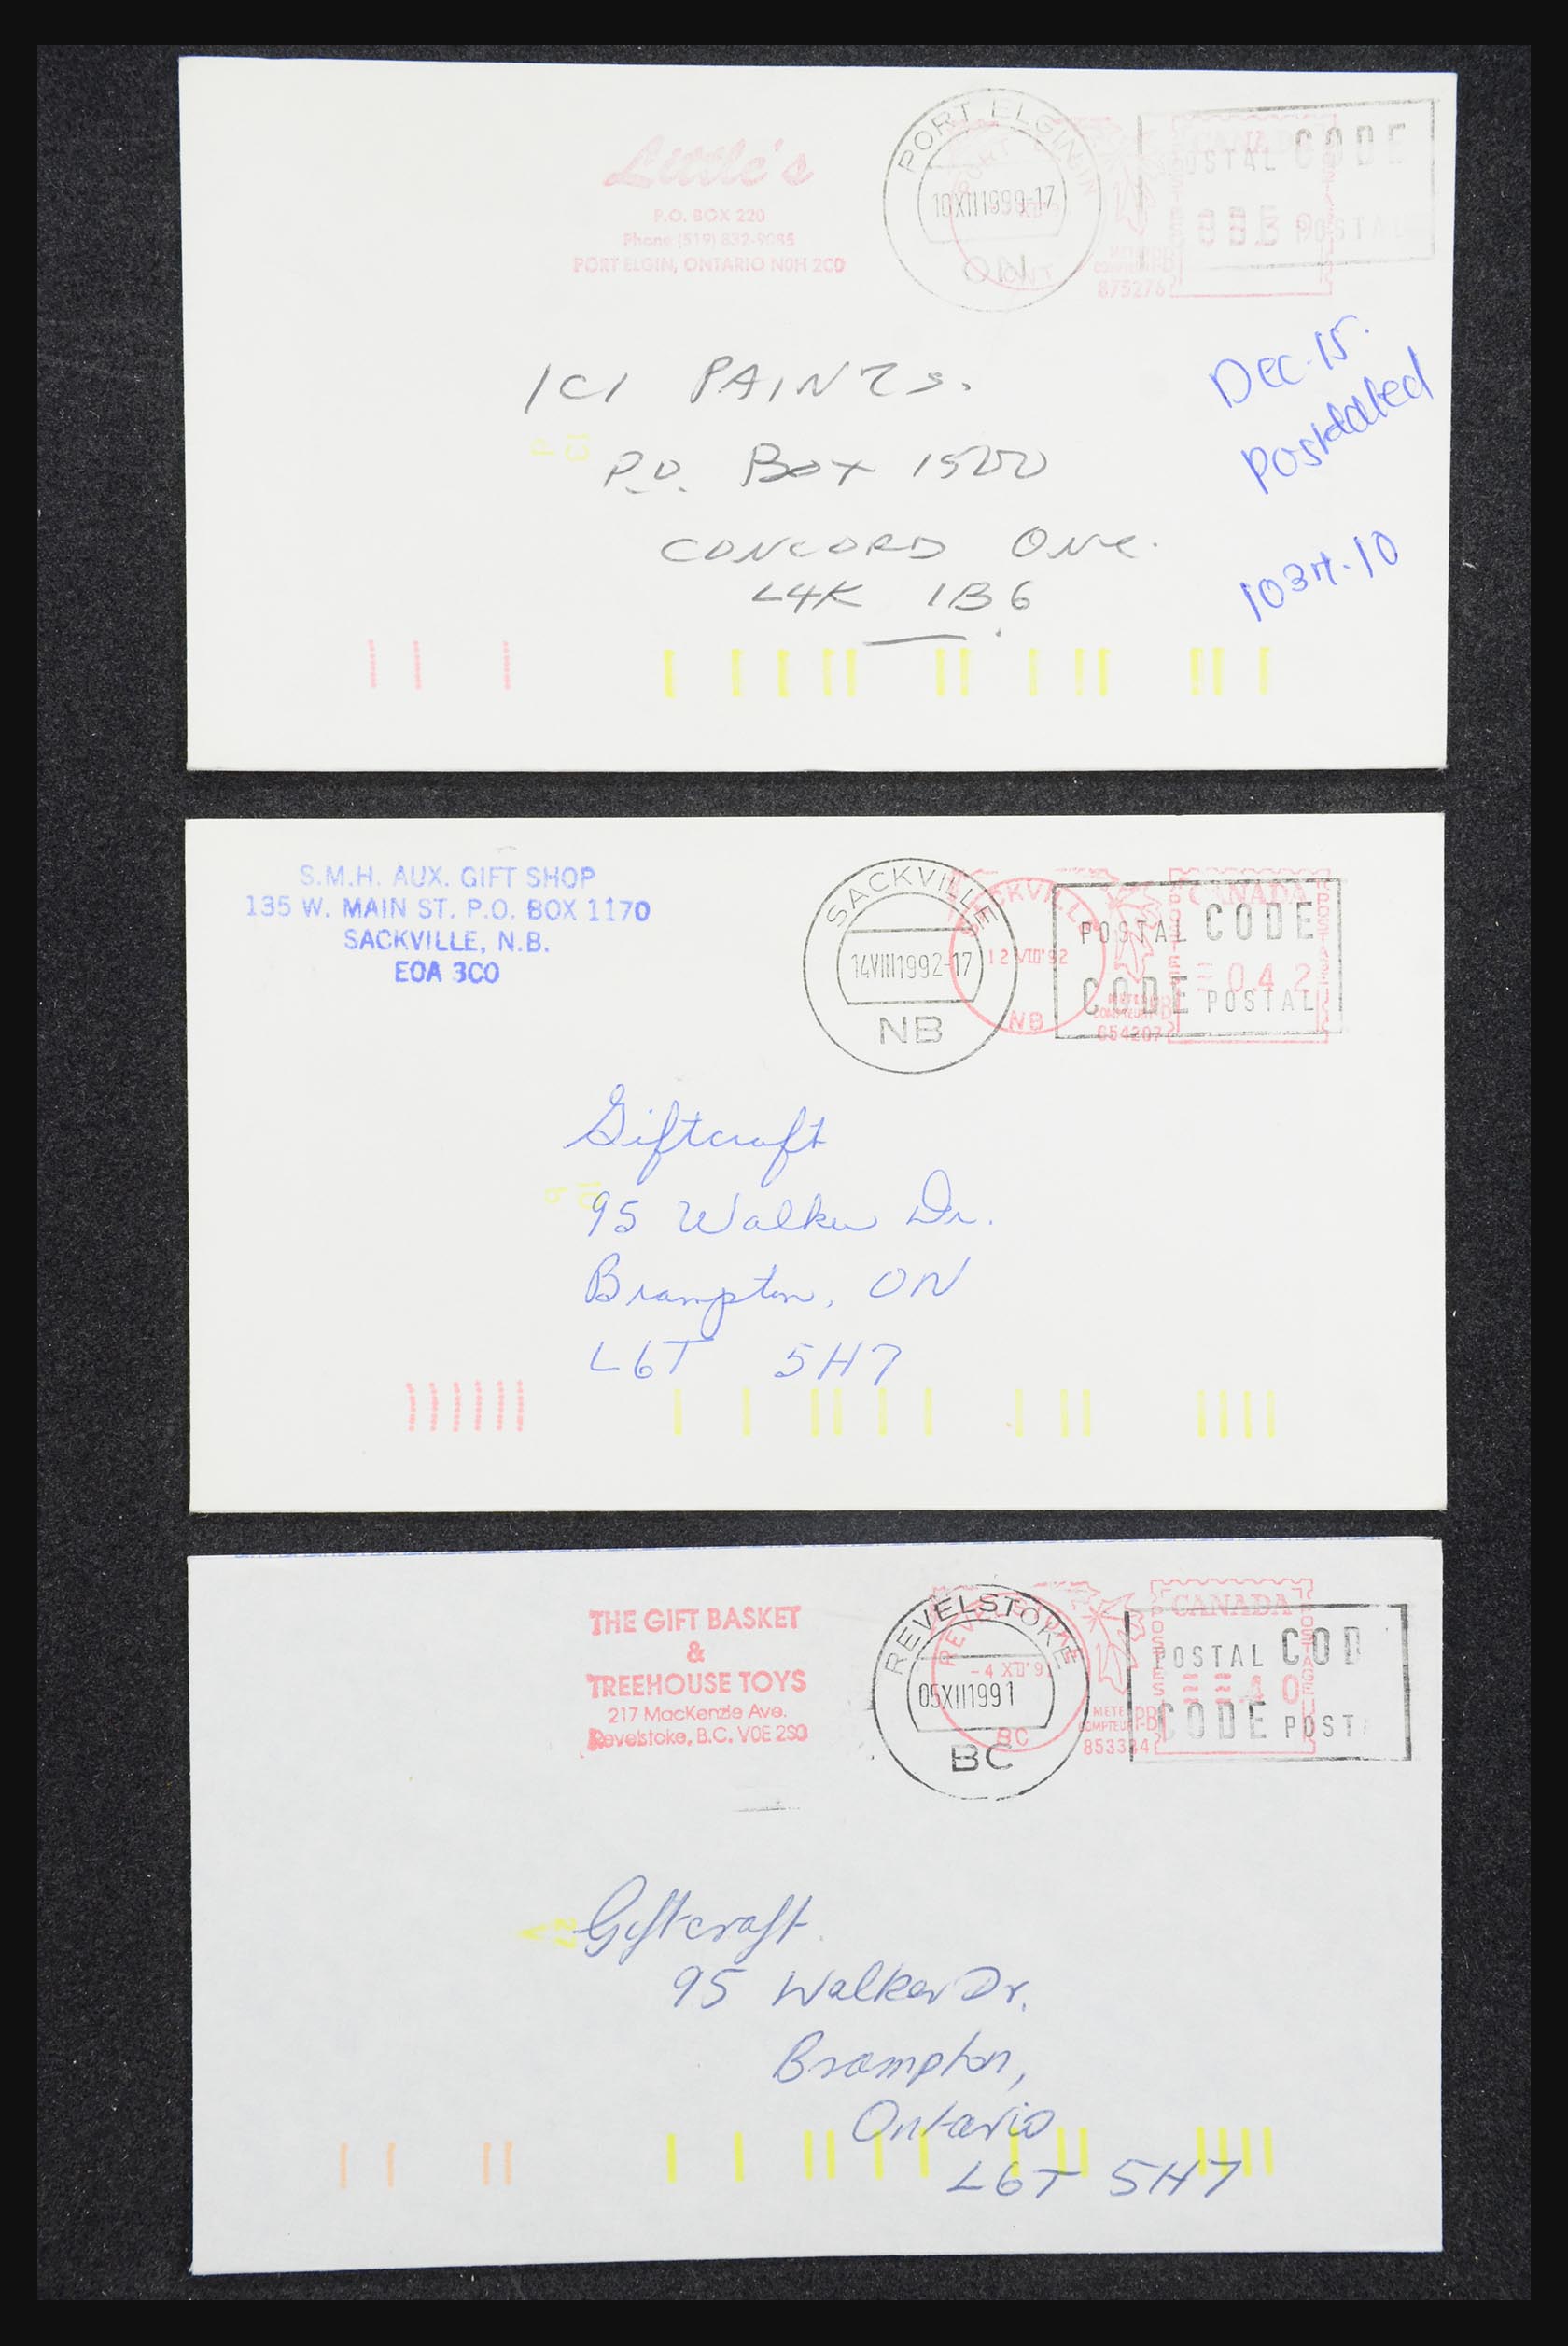 Little's
P.O. BOX 220
Phone (519) 832-9085
PORT ELGIN, ONTARIO N0H 2C0
PORT ELGIN
10XII1999-17
ON
PORT
ONT
POSTAL CODE
CODE POSTAL
CANADA
875276
ICI PAINTS.
P.O. BOX 1500
CONCORD ONT.
L4K 1B6
Dec. 15.
Postdated
1034-10
S.M.H. AUX. GIFT SHOP
135 W. MAIN ST. P.O. BOX 1170
SACKVILLE, N.B.
E0A 3C0
SACKVILLE
14VIII1992-17
NB
SACKVILLE
12 VIII '92
NB
POSTAL CODE
CODE POSTAL
CANADA
POSTES
POSTAGE
=042
METER
COMPTEUR PB
854207
Giftcraft
95 Walker Dr.
Brampton, ON
L6T 5H7
THE GIFT BASKET
&
TREEHOUSE TOYS
217 MacKenzie Ave.
Revelstoke, B.C. V0E 2S0
REVELSTOKE
05XII1991
BC
REVELSTOKE
-4 XII '9
BC
POSTAL COD
CODE POST
CANADA
POSTES
POSTAGE
METE
COMPTEUR PB
853334
Giftcraft
95 Walker Dr.
Brampton,
Ontario
L6T 5H7